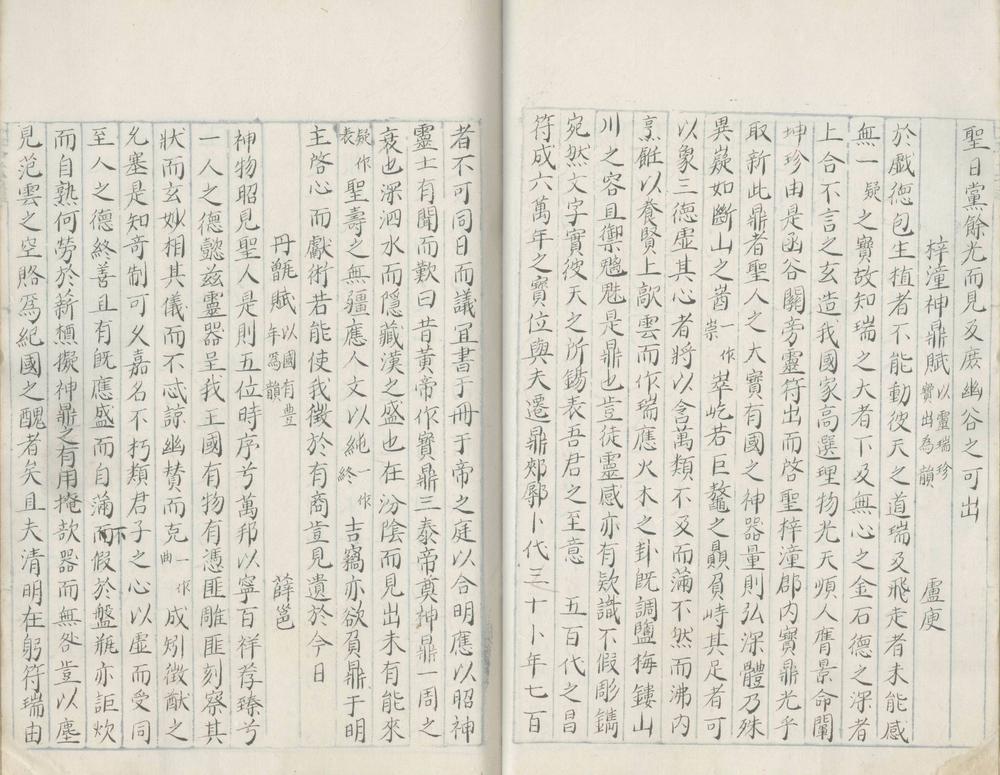 聖日黨餘光而見及庶幽谷之可出
梓潼神鼎賦以靈瑞珍寶出為韻 盧庾
於戲德包生植者不能動彼天之道瑞及飛走者未能感
無一疑之寶故知瑞之大者下及無心之金石德之深者
上合不言之玄造我國家高選理物光天順人膺景命闡
坤珍由是函谷關旁靈符出而啓聖梓潼郡内寶鼎光乎
取新此鼎者聖人之大寶有國之神器量則弘深體乃殊
異嶷如斷山之嶜一作崇崒屹若巨鼇之贔屓峙其足者可
以象三德虚其心者將以含萬類不及而蒲不然而沸内
烹飪以養賢上歊雲而作瑞應火木之卦既調鹽梅鏤山
川之容且禦魑魅是鼎也豈徒靈感亦有欵識不假彫鐫
宛然文字實彼天之所錫表吾君之至意 五百代之昌
符成六萬年之寶位與夫遷鼎郟鄏卜代三十卜年七百
者不可同日而議宜書于冊于帝之庭以合明應以昭神
靈士有聞而歎曰昔黃帝作寶鼎三泰帝奠神鼎一周之
衰也深泗水而隱藏漢之盛也在汾陰而見出未有能來
疑作表聖壽之無疆應人文以純一作終吉竊亦欲負鼎于明
主啓心而獻術若能使我徵於有商豈見遺於今日
丹甑賦以國有豐年為韻 薛邕
神物昭見聖人是則五位時序兮萬邦以寧百祥荐臻兮
一人之德懿兹靈器呈我王國有物有憑匪雕匪刻察其
狀而玄妙相其儀而不忒諒幽賛而克一作曲成矧徵猷之
允塞是知奇制可久嘉名不朽類君子之心以虛而受同
至人之德終善且有既應盛而自蒲而不假於盤瓶亦詎炊
而自熟何勞於薪槱擬神鼎之有用掩欹器而無咎豈以塵
見范雲之空賂爲紀國之醜者矣且夫清明在躬符瑞由